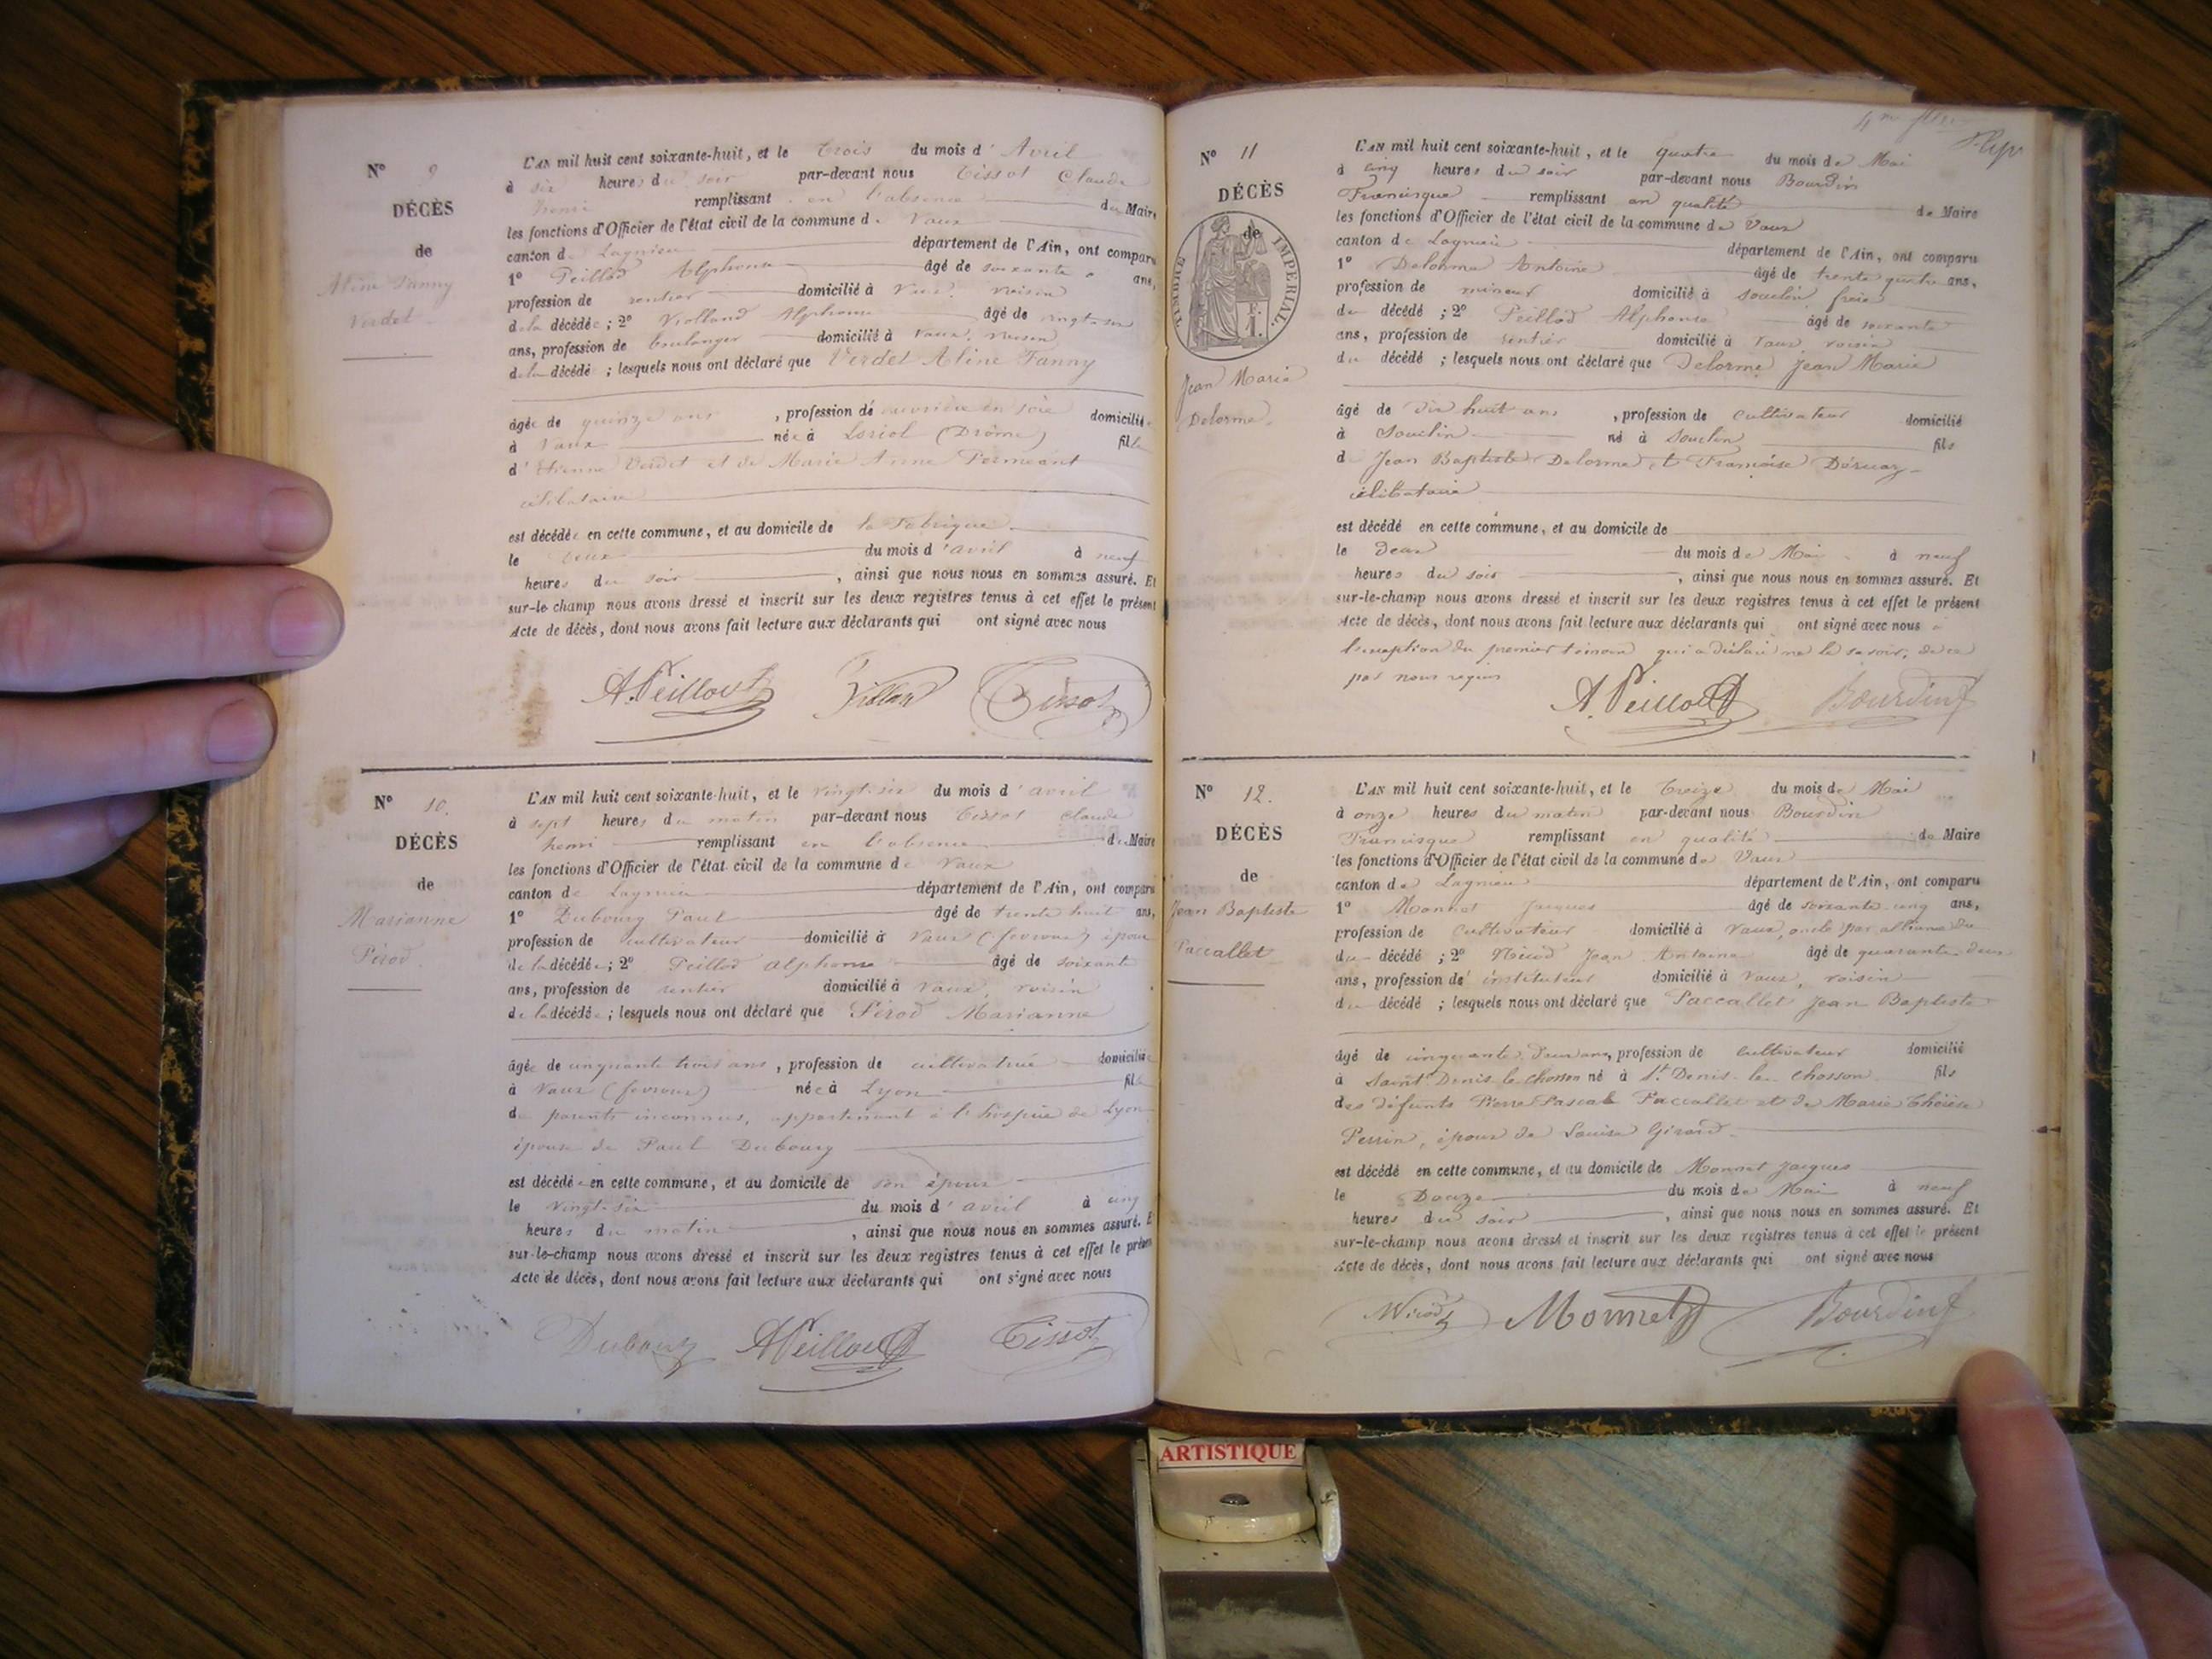 N° 9
DÉCÈS
de
Aline Fanny
Verdet
L'AN mil huit cent soixante-huit, et le trois du mois d'Avril
à six heures du soir par-devant nous Tissot Claude
henri remplissant en l'absence du Maire
les fonctions d'Officier de l'état civil de la commune de Vaux
canton de Lagnieu département de l'Ain, ont comparu
1° Peillod Alphonse âgé de soixante ans,
profession de rentier domicilié à Vaux, voisin
de la décédée ; 2° Violland Alphonse âgé de vingt-six
ans, profession de boulanger domicilié à Vaux, voisin
de la décédée ; lesquels nous ont déclaré que Verdet Aline Fanny
âgée de quinze ans, profession de ouvrière en soie domiciliée
à Vaux née à Loriol (Drôme) fille
d'Etienne Verdet et de Marie Anne
célibataire
est décédée en cette commune, et au domicile de la Fabrique
le deux du mois d'avril à neuf
heures du soir, ainsi que nous nous en sommes assuré. Et
sur-le champ nous avons dressé et inscrit sur les deux registres tenus à cet effet le présent
Acte de décès, dont nous avons fait lecture aux déclarants qui ont signé avec nous
A. Peillod Tissot
N° 10.
DÉCÈS
de
Marianne
Pérod
L'AN mil huit cent soixante-huit, et le vingt-six du mois d'avril
à sept heures du matin par-devant nous Tissot Claude
henri remplissant en l'absence du Maire
les fonctions d'Officier de l'état civil de la commune de Vaux
canton de Lagnieu département de l'Ain, ont comparu
1° Dubourg Paul âgé de trente huit ans,
profession de cultivateur domicilié à Vaux (fevroux) époux
de la décédée ; 2° Peillod alphonse âgé de soixante
ans, profession de rentier domicilié à Vaux, voisin
de la décédée ; lesquels nous ont déclaré que Pérod Marianne
âgée de cinquante trois ans, profession de cultivatrice domiciliée
à Vaux (fevroux) née à Lyon fille
de parents inconnus, appartenant à l'hospice de Lyon
épouse de Paul Dubourg
est décédée en cette commune, et au domicile de son époux
le vingt-six du mois d'avril à cinq
heures du matin, ainsi que nous nous en sommes assuré. E
sur-le-champ nous avons dressé et inscrit sur les deux registres tenus à cet effet le présen
Acte de décès, dont nous avons fait lecture aux déclarants qui ont signé avec nous
Dubourg A Peillod Tissot
N° 11
DÉCÈS
de
TIMBRE IMPÉRIAL.
Jean Marie
Delorme
L'AN mil huit cent soixante-huit, et le quatre du mois de Mai
à cinq heures du soir par-devant nous Bourdin
Francisque remplissant en qualité de Maire
les fonctions d'Officier de l'état civil de la commune de Vaux
canton de Lagnieu département de l'Ain, ont comparu
1° Delorme Antoine âgé de trente quatre ans,
profession de mineur domicilié à Souclin, frère
du décédé ; 2° Peillod Alphonse âgé de soixante
ans, profession de rentier domicilié à Vaux, voisin
du décédé ; lesquels nous ont déclaré que Delorme Jean Marie
âgé de dix huit ans, profession de cultivateur domicilié
à Souclin né à Souclin fils
de Jean Baptiste Delorme et Françoise
célibataire
est décédé en cette commune, et au domicile de
le deux du mois de Mai à neuf
heures du soir, ainsi que nous nous en sommes assuré. Et
sur-le-champ nous avons dressé et inscrit sur les deux registres tenus à cet effet le présent
Acte de décès, dont nous avons fait lecture aux déclarants qui ont signé avec nous à
l'exception du premier témoin qui a déclaré ne le savoir, de ce
par nous requis
A. Peillod Bourdin
N° 12.
DÉCÈS
de
Jean Baptiste
Paccallet
L'AN mil huit cent soixante-huit, et le treize du mois de Mai
à onze heures du matin par-devant nous Bourdin
Francisque remplissant en qualité de Maire
les fonctions d'Officier de l'état civil de la commune de Vaux
canton de Lagnieu département de l'Ain, ont comparu
1° Monnet Jacques âgé de soixante cinq ans,
profession de cultivateur domicilié à Vaux, oncle par alliance du
du décédé ; 2° Nicod Jean Antoine âgé de quarante deux
ans, profession de instituteur domicilié à Vaux, voisin
du décédé ; lesquels nous ont déclaré que Paccallet Jean Baptiste
âgé de cinquante deux ans, profession de cultivateur domicilié
à Saint Denis le Chosson né à St Denis le Chosson fils
des défunts Pierre Pascal Paccallet et de Marie Thérèse
Perrin, époux de Louise Girard
est décédé en cette commune, et au domicile de Monnet Jacques
le Douze du mois de Mai à neuf
heures du soir, ainsi que nous nous en sommes assuré. Et
sur-le-champ nous avons dressé et inscrit sur les deux registres tenus à cet effet le présent
Acte de décès, dont nous avons fait lecture aux déclarants qui ont signé avec nous
Nicod Monnet Bourdin
ARTISTIQUE